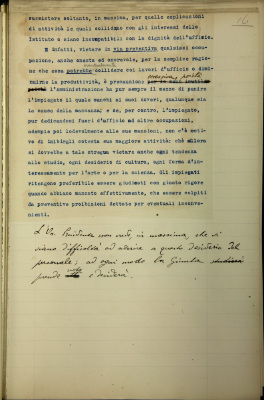 16
sussistere soltanto, in massima, per quelle esplicazioni
di attività le quali collidano con gli interessi dello
Istituto o siano incompatibili con la dignità dell'ufficio.
E infatti, vietare in via preventiva qualsiasi occupa-
zione, anche onesta ed onorevole, per la semplice ragio-
ne che essa potrebbe collidere coi lavori d'ufficio o dimi-
nuirne la produttività, è prevenzione
massima, poiché
l'amministrazione ha pur sempre il mezzo di punire
l'impiegato il quale manchi ai suoi doveri, qualunque sia
la causa della mancanza; e se, per contro, l'impiegato,
pur dedicandosi fuori d'ufficio ad altre occupazioni,
adempie poi lodevolmente alle sue mansioni, non c'è moti-
vo di inibirgli cotesta sua maggiore attività; chè allora
si dovrebbe a tale stregua vietare anche ogni tendenza
allo studio, ogni desiderio di cultura, ogni forma d'in-
teressamento per l'arte o per la scienza. Gli impiegati
ritengono preferibile essere giudicati con giusto rigore
quando abbiano mancato effettivamente, che essere colpiti
da preventive proibizioni dettate per eventuali inconve-
nienti.
L'On. Presidenza non vede, in massima, che vi
siano difficoltà ad aderire a questo desiderio del
personale; ad ogni modo la Giunta
veda e deciderà.